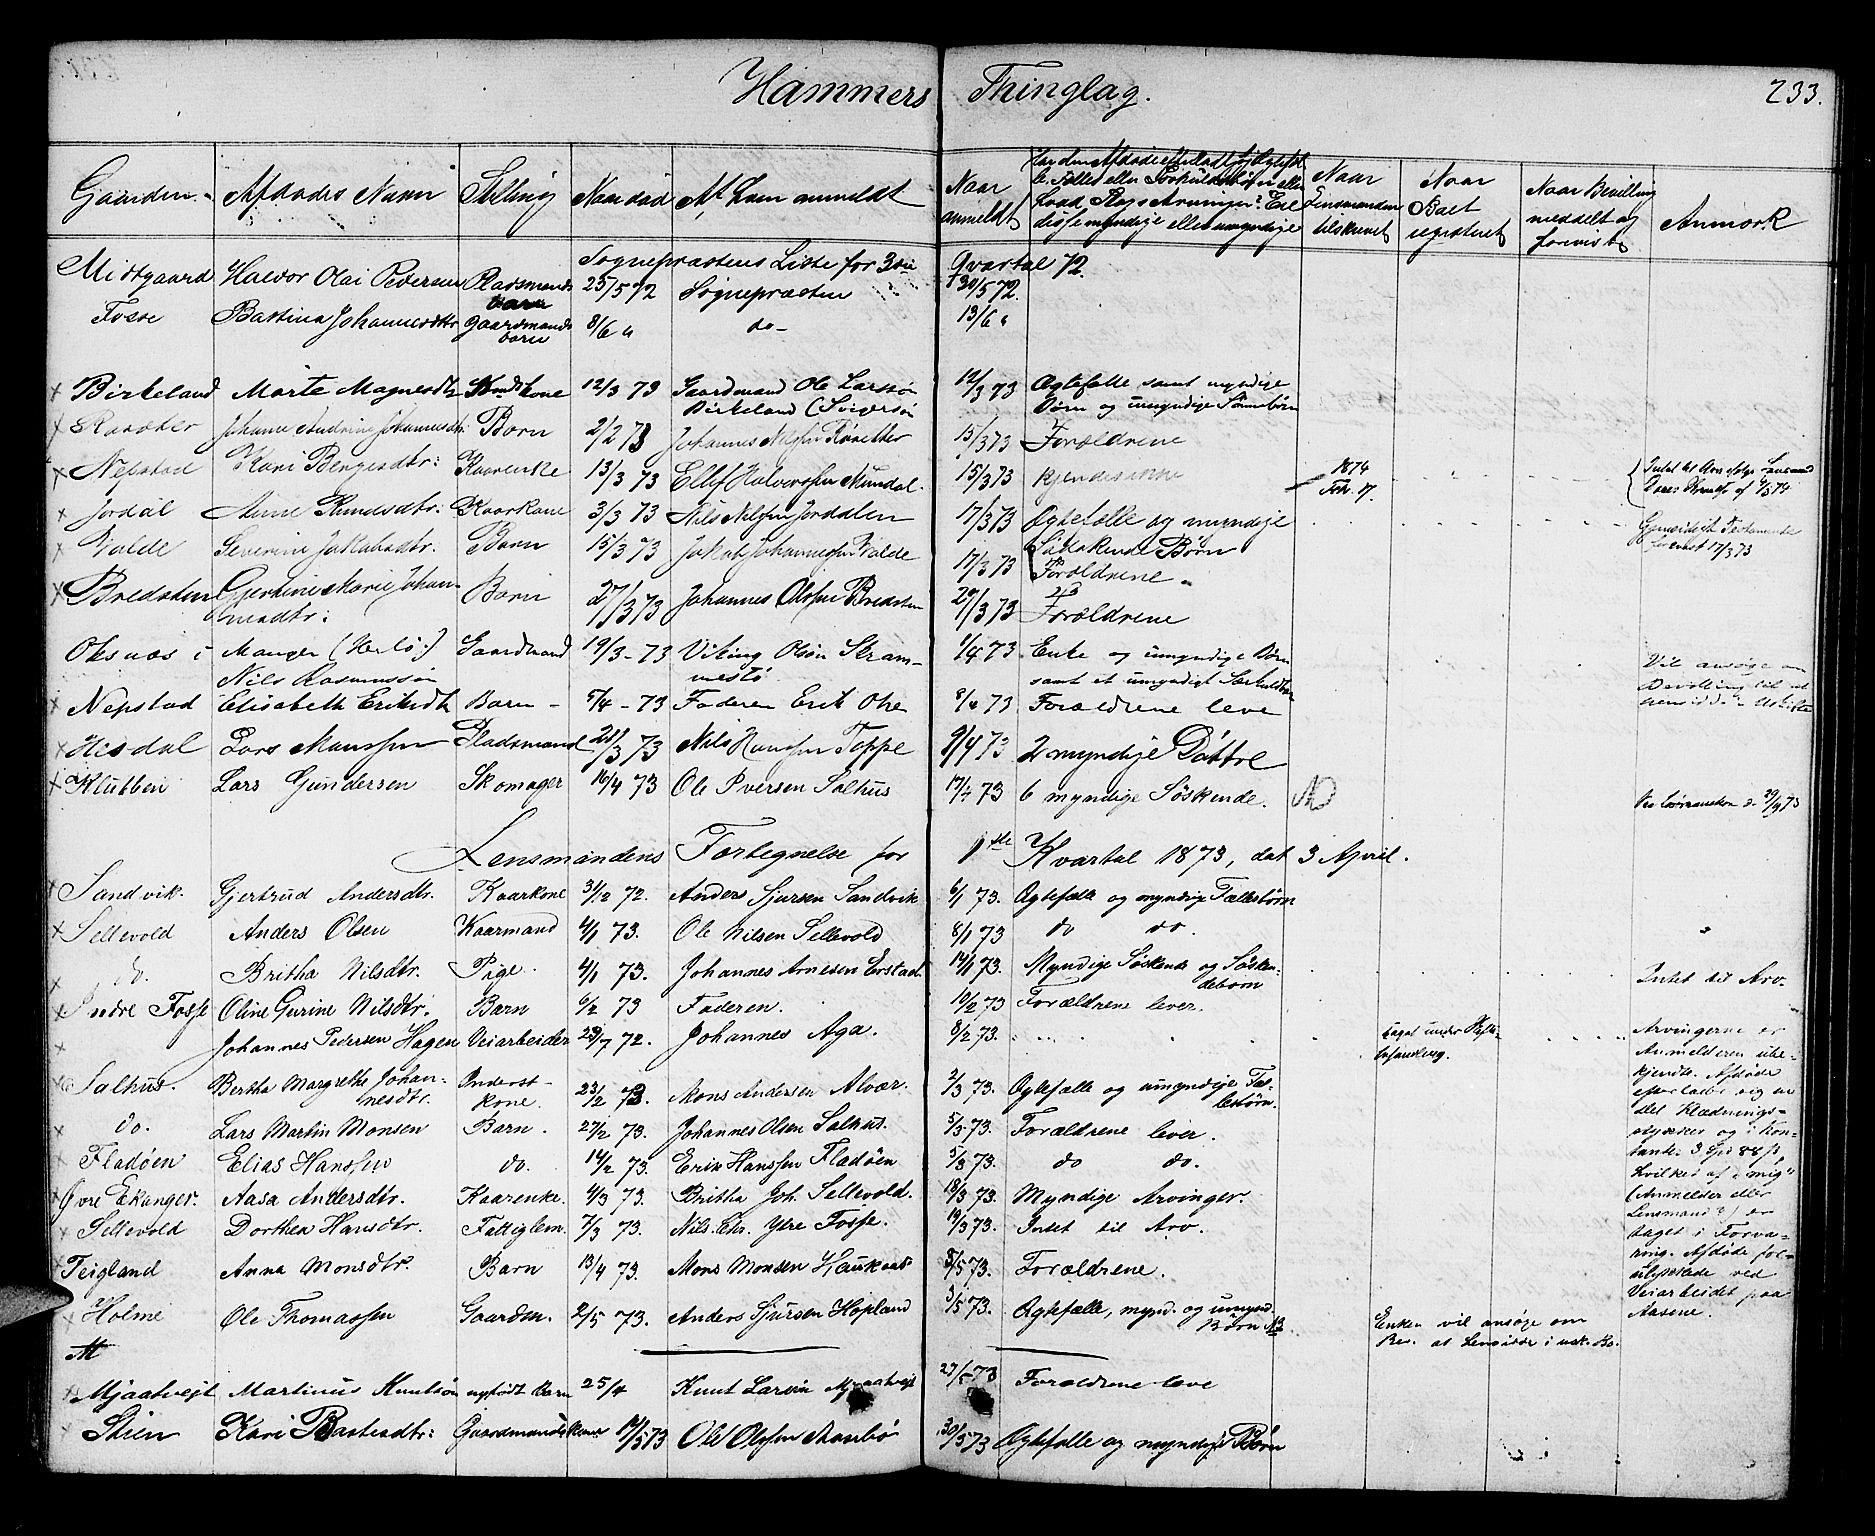 Hammers Thinglag. 233.
Gaarden. Afdødes Navn Stilling Naar død Af hvem anmeldt Naar anmeldt Naar Lensmanden tilskrevet Naar Boet registreret Naar Bevilling meddelt og forevist Anmærk
Sognepræstens Liste for 3die Qvartal 72.
Midtgaard Halvor Olai Petersen Pladsmands barn 25/5 72 Sognepræsten 30/5 72.
Fosse Bastina Johannesdtr Gaardmands barn 8/6 " do- 13/6 "
x Birkeland Marte Magnesdtr kone 12/3 73 Gaardmand Ole Larssøn Birkeland (Svigersøn 12/3 73 Ægtefælle samt myndige Børn og umyndige Sønnebørn
x Johanne Andrine Johannesdtr: Barn 2/2 73 Johannes Nilssen 15/3 73 Forældrene
x Nepstad Kari Bergesdtr: Kaarenke 13/3 73 Ellef Halvorssen Mundal 15/3 73 kjendes ikke 1874 Feb. 17.
x Jordal Anne Knudsdtr: Kaarkone 3/3 73 Nils Nilssen Jordalen 17/3 73 Ægtefælle og myndige Børn Gjensidigt Testamente forevist 17/3 73
x Valde Severine Jakobsdtr. Barn 15/3 73 Jakob Johannessen Valde 17/3 73 Forældrene
x Bredsten Gjertine Marie Johannesdtr: Barn 27/3 73 Johannes Olssen Bredsten 29/3 73 Forældrene
Oksnæs i Manger (Herlø:) Nils Rasmussøn Gaardmand 19/3 - 73 Viking Olsøn Skrammestø 1/4 73 Enke og umyndige Børn samt et umyndigt Særkuldbarn Vil ansøge om Bevilling til at hensidde i Uskifte
x Nepstad Elisabeth Eriksdtr Barn - 5/4 - 73 Faderen Erik Olsen 8/4 73 Forældrene leve
x Hesdal Lars Monssen Pladsmand 28/3 73 Nils Hanssen Toppe 9/4 73 2 myndige Døttre
x Klubben Lars Gundersen Skomager 16/4 73 Ole Iversen Salhus 17/4 73 6 myndige Søskende.
Lensmandens Fortegnelse for 1ste Kvartal 1873, dat 3 April.
x Sandvik. Gjertrud Andersdtr. Kaarkone 31/12 72. Anders Sjursen Sandvik 6/1 73. Ægtefælle og myndige Fællesbørn
x Sellevold Anders Olsen Kaarmand 4/1 73. Ole Nilsen Sellevold 8/1 73 do do.
x do. Britha Nilsdtr. Pige. 4/1 73. Johannes Arnesen Erstad. 14/1 73. Myndige Søskende og Søskendebørn Intet til Arv.
x Indre Fosse Oline Gurine Nilsdtr. Barn 6/2 73 Faderen. 10/2 73 Forældrene lever.
x Johannes Pedersen Hagen Veiarbeider 29/7 72. Johannes Aga. 8/2 73. taget under Skiftebehandling. Arvingerne er Anmelderen ubekjendte. Afdøde efterlader sig en del Klædningsstykker og i Kontanter 3 Spd 88 s, hvilket af "mig" (Anmelder eller Lensmand?) er taget i Forvaring. Afdøde forulykkede ved Veiarbeidet paa Aasene.
x Salhus. Bertha Margrethe Johannesdtr. Inderstkone. 23/2 73. Mons Andersen Alvær. 2/3 73. Ægtefælle og umyndige Fællesbørn.
x do. Lars Martin Monsen Barn. 27/2 73. Johannes Olsen Salhus. 5/3 73. Forældrene lever.
x Fladøen Elias Hanssen do. 14/2 73. Erik Hanssen Fladøen 5/3 73. do do.
x Øvre Ekanger. Aasa Andersdtr. Kaarenke. 4/3 73. Britha Joh. Sellevold. 18/3 73. Myndige Arvinger.
x Sellevold Dorthea Hansdtr. Fattiglem. 7/3 73. Nils Chr. Ytre Fosse. 19/3 73. Intet til Arv.
x Teigland Anna Monsdtr. Barn 13/4 73. Mons Monsen Haukaas 5/5 73. Forældrene.
x Holme Ole Thomassen Gaardm. 2/5 73. Anders Sjursen Hopland 3/5 73. Ægtefælle, mynd. og umynd. Børn Enken vil ansøge om Bev. at hensidde i usk. Bo.
x Mjaatveit Martinus Knutsøn nyfødt Barn 25/4 Knut Larsøn Mjaatveit 27/5 73 Forældrene leve
x Stien Kari Bastesdtr: Gaardmandskone 14/5 73 Ole Olssen 30/5 73 Ægtefælle og myndige Børn